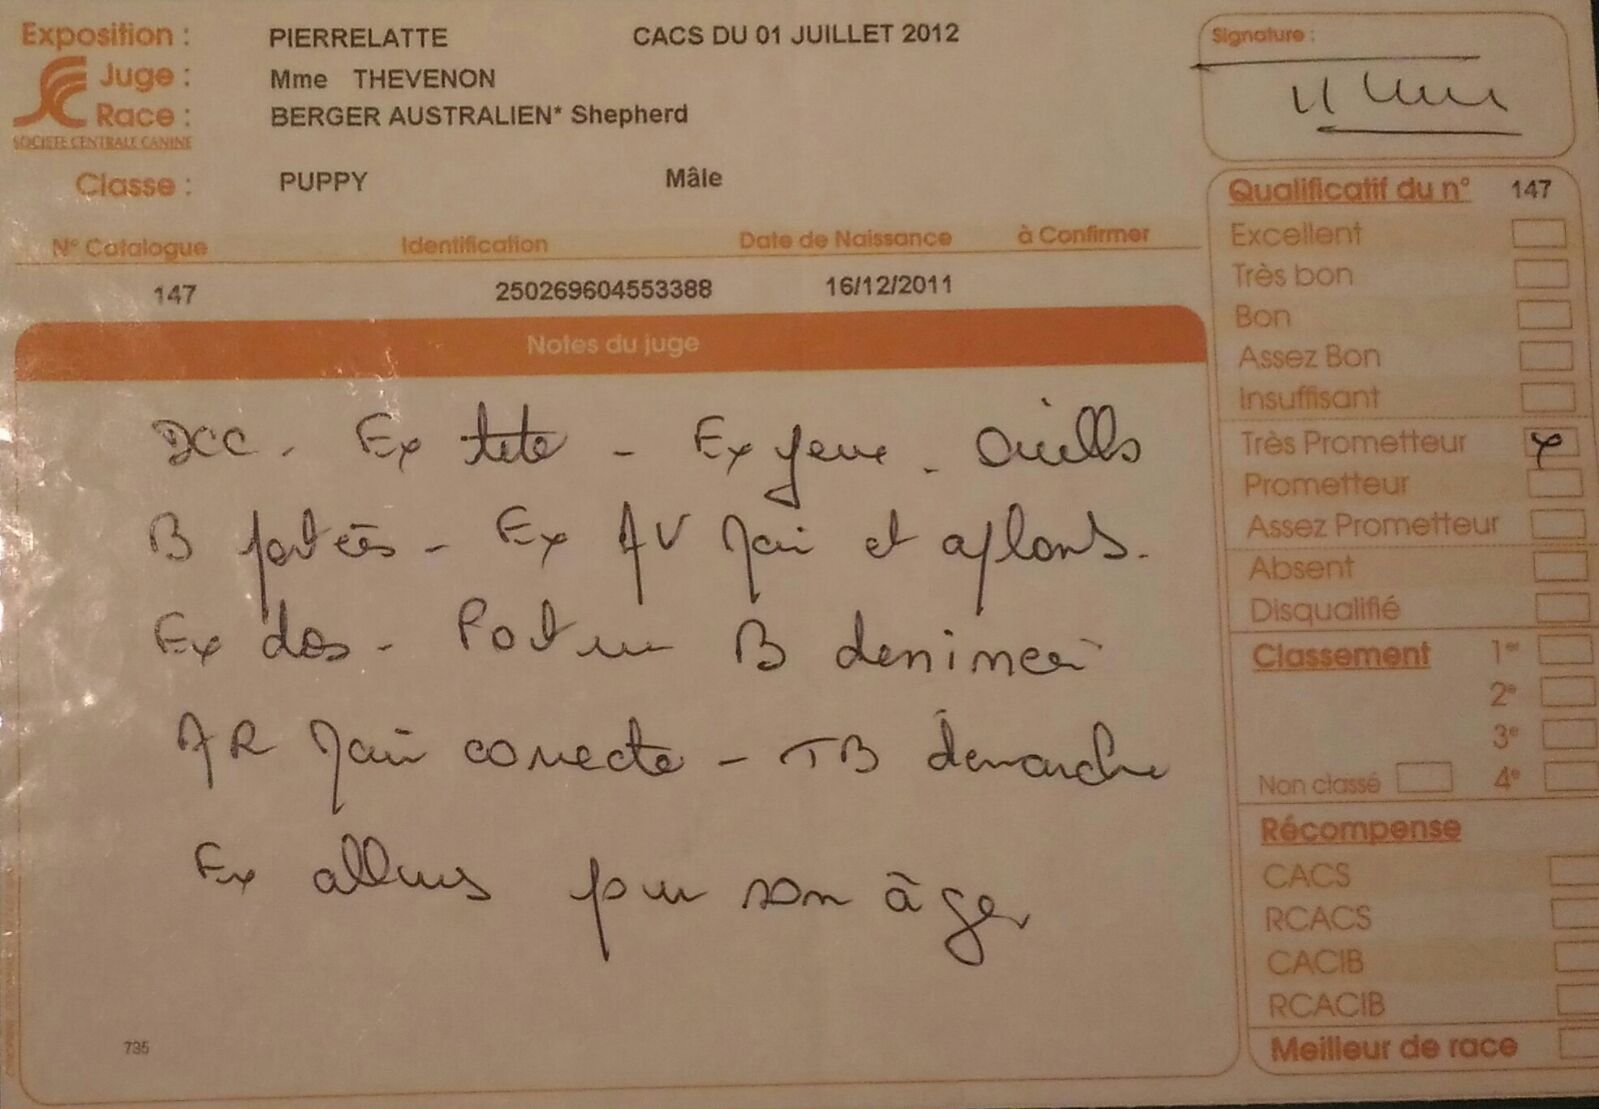 Exposition : PIERRELATTE CACS DU 01 JUILLET 2012
Juge : Mme THEVENON
Race : BERGER AUSTRALIEN* Shepherd
SOCIETE CENTRALE CANINE
Classe : PUPPY Mâle
N° Catalogue Identification Date de Naissance à Confirmer
147 250269604553388 16/12/2011
Notes du juge
DCC - Ex tete - Ex yeux - Oreilles
B portées - Ex AV main et aplombs.
Ex dos - Poitrine B descendue
AR main correcte - TB démarche
Ex allures pour son âge
735
Signature :
Qualificatif du n° 147
Excellent
Très bon
Bon
Assez Bon
Insuffisant
Très Prometteur x
Prometteur
Assez Prometteur
Absent
Disqualifié
Classement 1er
2e
3e
Non classé 4e
Récompense
CACS
RCACS
CACIB
RCACIB
Meilleur de race